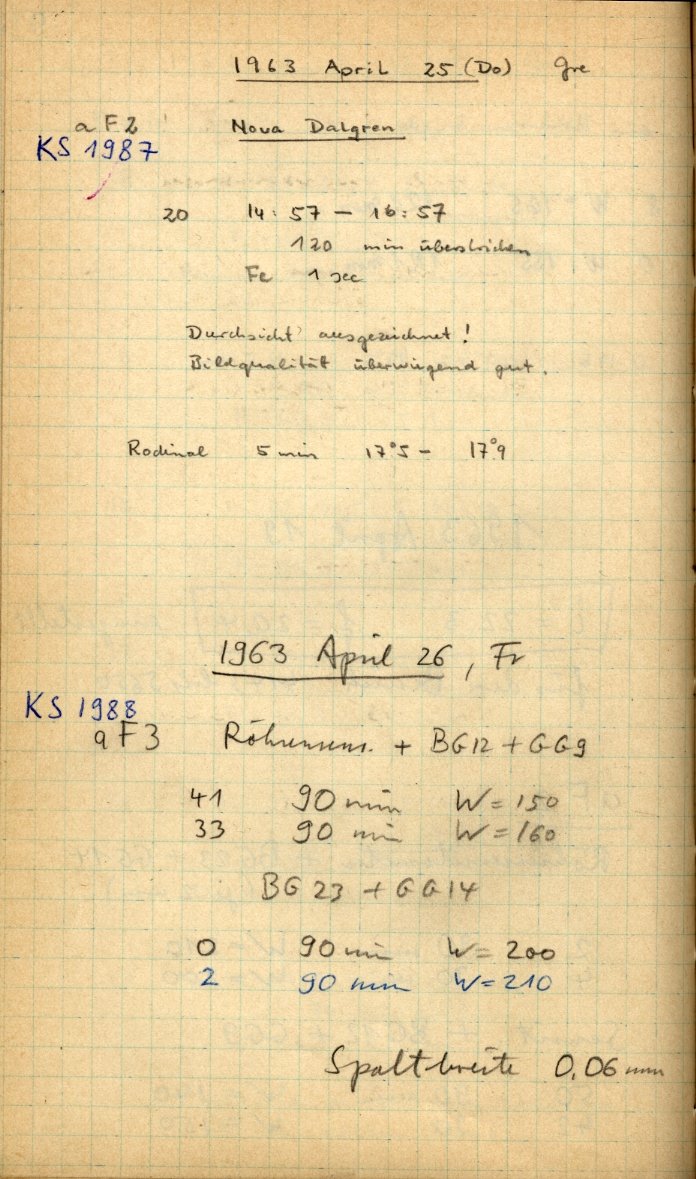 1963 April 25 (Do) Gre
a F2 Nova Dalgren
KS 1987
20 14:57 — 16:57
120 min überstrichen
Fe 1 sec
Durchsicht ausgezeichnet!
Bildqualität überwiegend gut.
Rodinal 5 min 17°5 — 17°9
1963 April 26, Fr
KS 1988
a F3 Röhrensens. + BG12 + GG9
41 90 min W = 150
33 90 min W = 160
BG 23 + GG14
0 90 min W = 200
2 90 min W = 210
Spaltbreite 0,06 mm